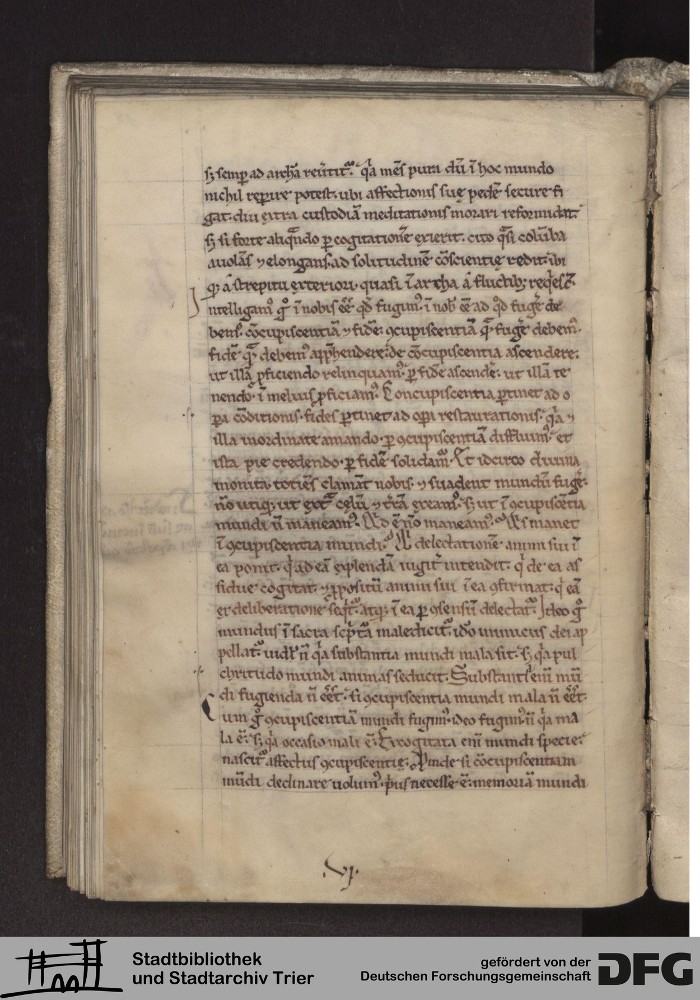 sʒ semp ad archā reūtit᷑. q̄a mēs pura dū ī hoc mundo
nichil repire potest. ubi affectionis suę pedē secure fi
gat. diu extra custodiā meditationis morari reformidat.
sʒ si forte aliq̄ndo p cogitationē exierit. cito q̄si colūba
auolās ⁊ elongans. ad solitudinē cōscientię redit. ibi
qʒ a strepitu exteriori. quasi ī archa a fluctibʒ reqͥescͭ.
ntelligamꝰ gͦ ī nobis eē qd̄ fugimꝰ. ī nob̄ eē ad qͦd fugͤe de
bemꝰ. cōcupiscentiā ⁊ fidē. ꝯcupiscentiā q̄ fugͤe debemꝰ.
fidē qͣ debemꝰ app̄hendere. de cōcupiscentia ascendere.
ut illā ꝓficiendo relinquamꝰ. p fidē ascendē. ut illā te
nendo. ī meliꝰ ꝓficiamꝰ. Concupiscentia ptinet ad o
pa cōditionis. fides ptinet ad opa restaurationis. q̄a ⁊
illa inordinate amando. p ꝯcupiscentiā diffluimꝰ. et
ista pie credendo. p fidē solidamꝰ. Et idcirco diuina
monita totiens clamāt nobis. ⁊ suadent mundū fugͤe.
nō utiqʒ ut extͣ cęlū ⁊ tr̄ā exeamꝰ. sʒ ut ī ꝯcupiscētia
mundi n̄ maneamꝰ. Qd ē nō maneamꝰ. Is manet
ī ꝯcupiscentia mundi. qͥ delectationē animi sui ī
ea ponit. qͥ ad eā explendā iugit᷑ intendit. qͥ de ea as
sidue cogitat. ⁊ ꝓpositū animi sui ī ea ꝯfirmat. qͥ eā
ex deliberatione seqͥt᷑. atqʒ ī ea p ꝯsensū delectat᷑. Ideo gͦ
mundus ī sacra scp̄ta maledicit᷑. idō inimicus dei ap
pellat᷑. n̄ q̄a substantia mundi mala sit. sʒ q̄a pul
chritudo mundi animas seducit. Substantia enī mū
di fugienda n̄ eēt. si ꝯcupiscentia mundi mala n̄ eēt.
Cum gͦ ꝯcupiscentiā mundi fugimꝰ. ideo fugimꝰ n̄ q̄a ma
la ē. sʒ q̄a occasio mali ē. Excogitata enī mundi specie.
nascit᷑ affectus ꝯcupiscentię. Vnde si cōcupiscentiam
mūdi declinare uolumꝰ. pͥus necesse ē. memoriā mundi
.VI.
Stadtbibliothek
und Stadtarchiv Trier
gefördert von der
Deutschen Forschungsgemeinschaft DFG